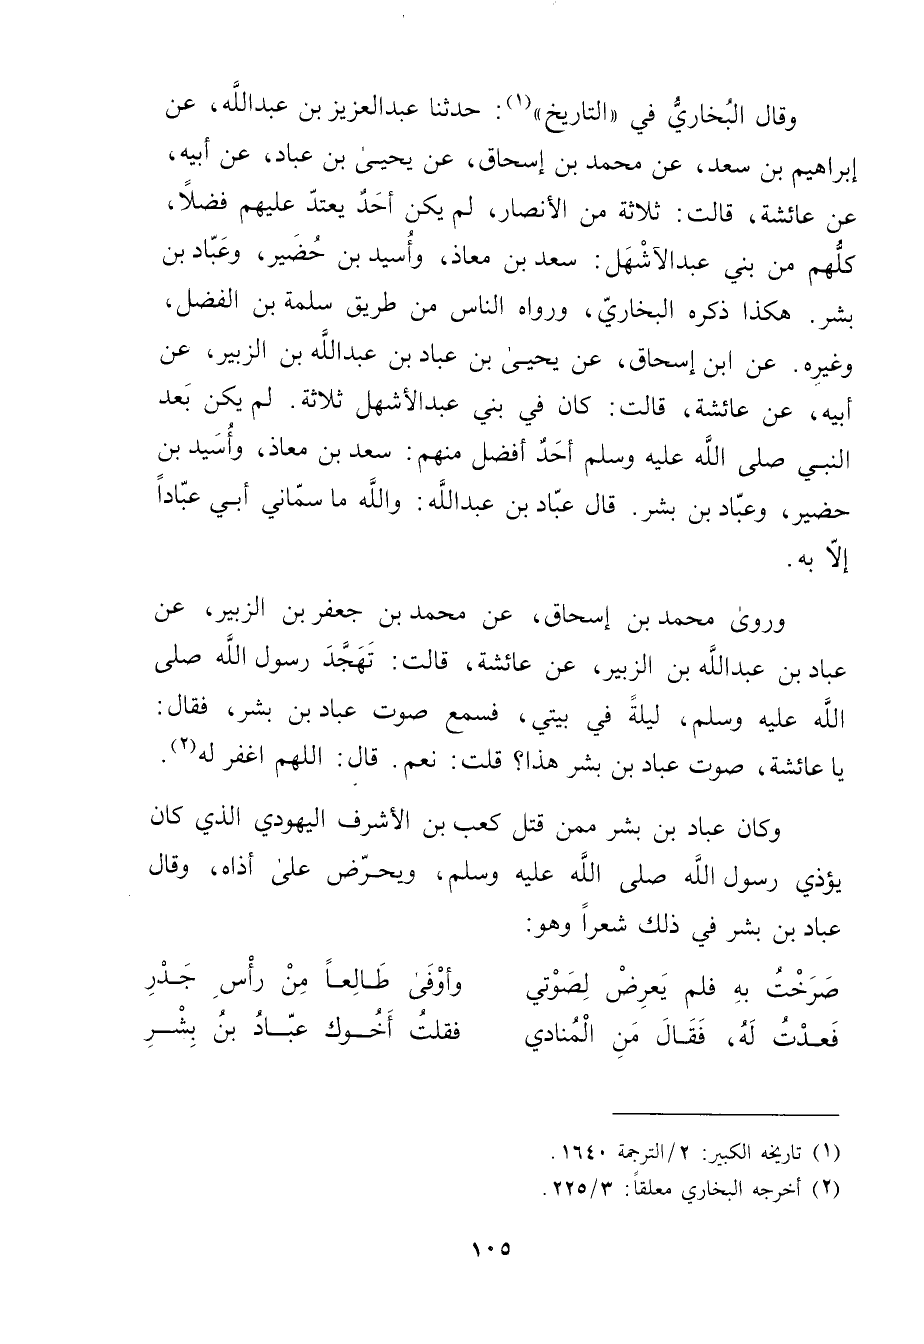 وقال البُخاريُّ في «التاريخ»(١): حدثنا عبدالعزيز بن عبداللَّه، عن
إبراهيم بن سعد، عن محمد بن إسحاق، عن يحيىٰ بن عباد، عن أبيه،
عن عائشة، قالت: ثلاثة من الأنصار، لم يكن أحَدٌ يعتدّ عليهم فضلاً،
كلُّهم من بني عبدالأشْهَل: سعد بن معاذ، وأُسيد بن حُضَير، وعَبّاد بن
بشر. هكذا ذكره البخاريّ، ورواه الناس من طريق سلمة بن الفضل،
وغيره. عن ابن إسحاق، عن يحيىٰ بن عباد بن عبداللَّه بن الزبير، عن
أبيه، عن عائشة، قالت: كان في بني عبدالأشهل ثلاثة. لم يكن بَعد
النبي صلى اللَّه عليه وسلم أحَدٌ أفضل منهم: سعد بن معاذ، وأُسَيد بن
حضير، وعبّاد بن بشر. قال عبّاد بن عبداللَّه: واللَّه ما سمّاني أبي عبّاداً
إلّا به.
وروىٰ محمد بن إسحاق، عن محمد بن جعفر بن الزبير، عن
عباد بن عبداللَّه بن الزبير، عن عائشة، قالت: تَهَجَّدَ رسول اللَّه صلى
اللَّه عليه وسلم، ليلةً في بيتي، فسمع صوت عباد بن بشر، فقال:
يا عائشة، صوت عباد بن بشر هذا؟ قلت: نعم. قال: اللهم اغفر له(٢).
وكان عباد بن بشر ممن قتل كعب بن الأشرف اليهودي الذي كان
يؤذي رسول اللَّه صلى اللَّه عليه وسلم، ويحرّض علىٰ أذاه، وقال
عباد بن بشر في ذلك شعراً وهو:
صَرَخْتُ بهِ فلم يَعرِضْ لِصَوْتي وأوْفَىٰ طَالِعاً مِنْ رأْسِ جَدْرِ
فَعدْتُ لَهُ، فَقَالَ مَنِ الْمُنادي فقلتُ أَخُوك عبّادُ بنُ بِشْرِ
(١) تاريخه الكبير: ٢/الترجمة ١٦٤٠.
(٢) أخرجه البخاري معلقاً: ٢٢٥/٣.
١٠٥